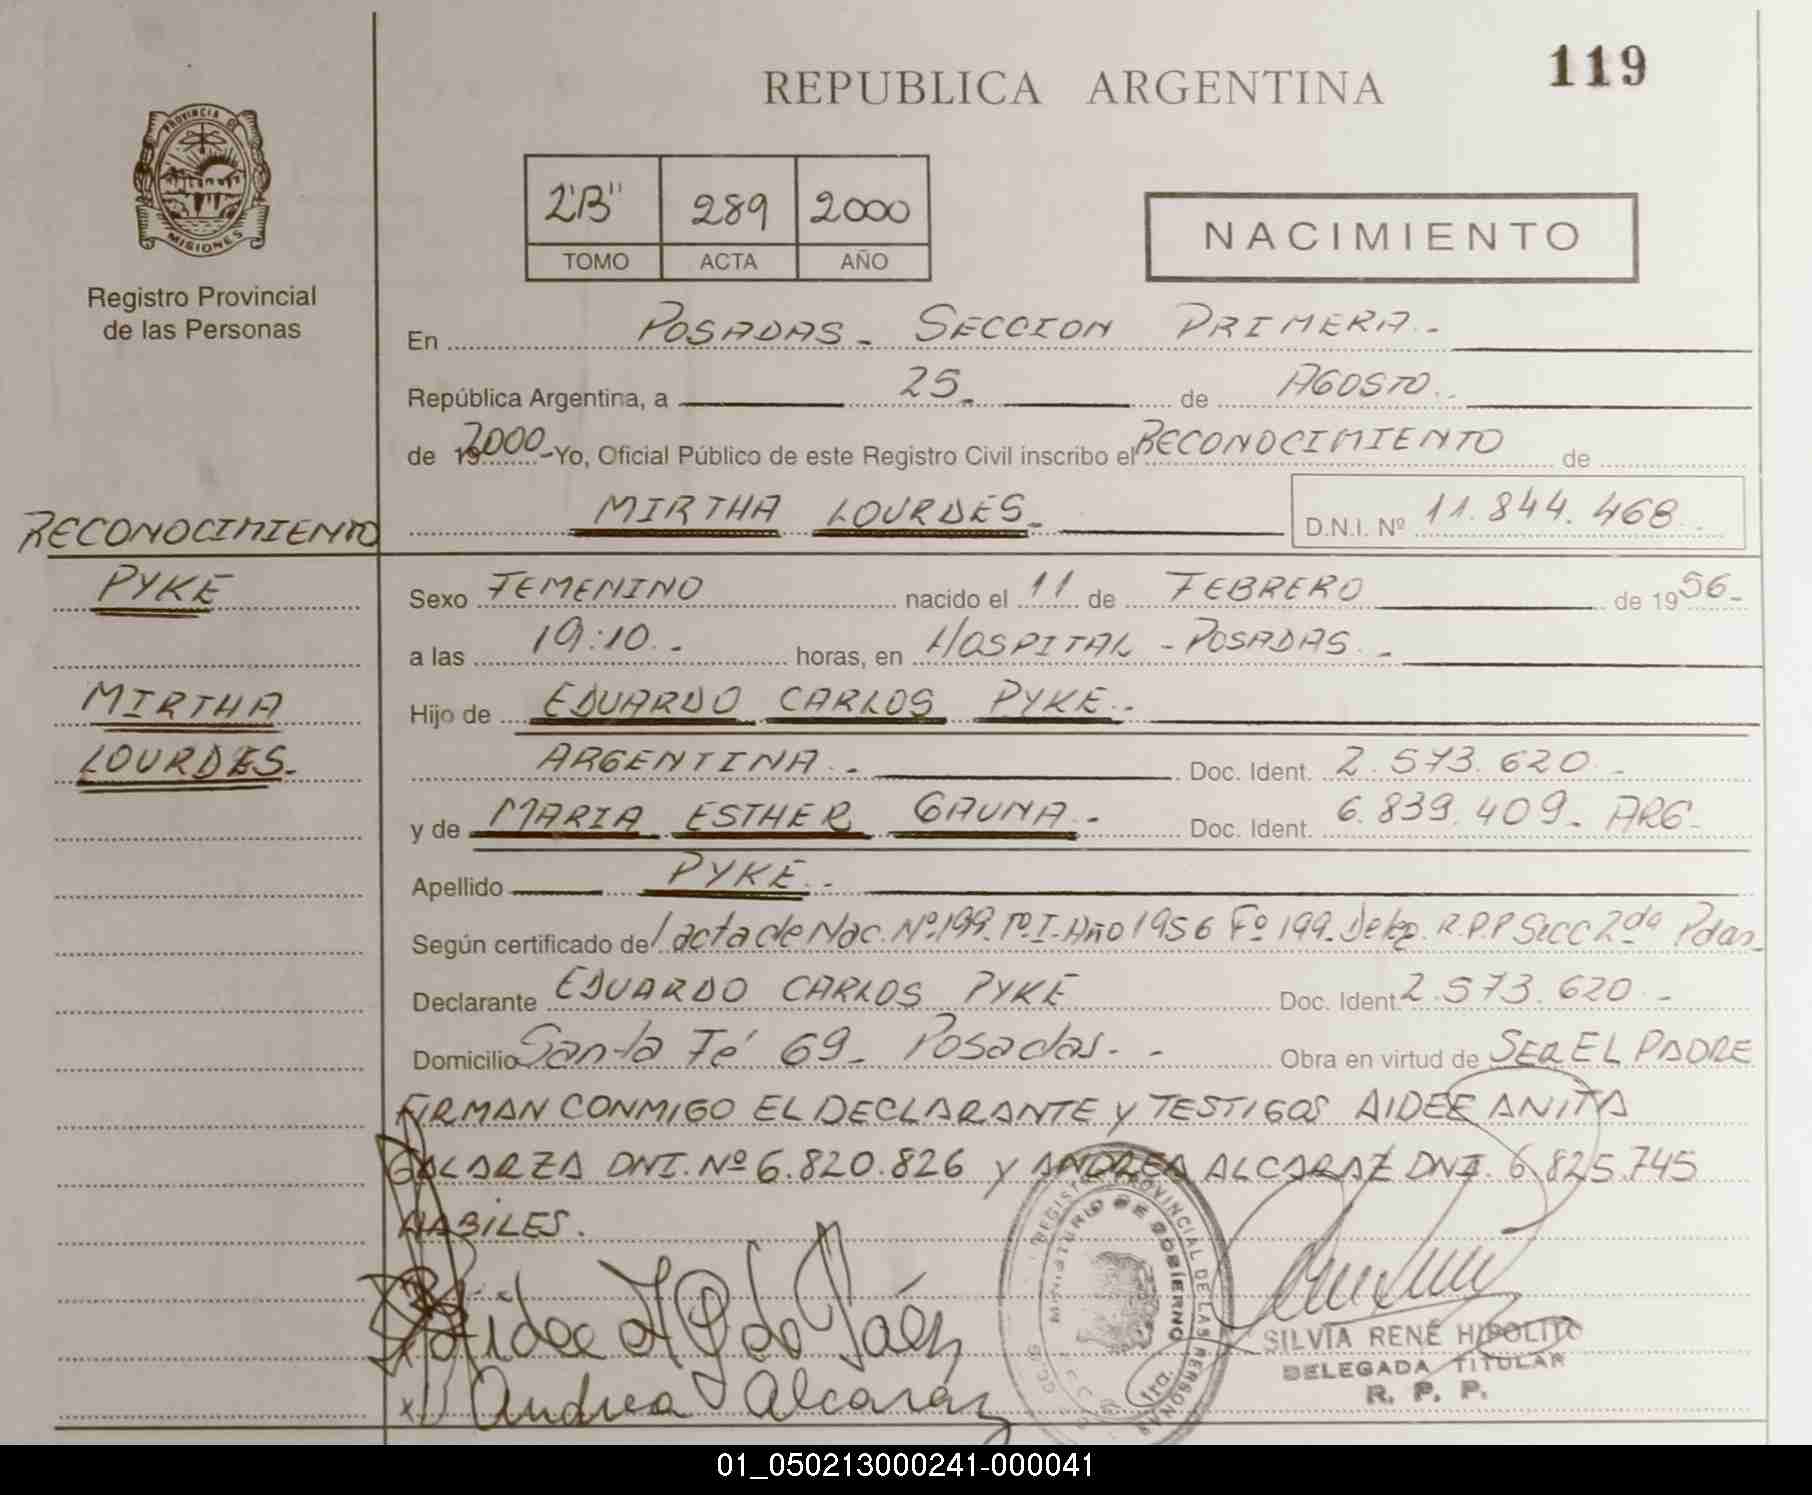 119
REPUBLICA ARGENTINA
PROVINCIA DE
MISIONES
Registro Provincial
de las Personas
2"B" 289 2000
TOMO ACTA AÑO
NACIMIENTO
En POSADAS - SECCION PRIMERA.-
República Argentina, a 25 - de AGOSTO.
de 192000-Yo, Oficial Público de este Registro Civil inscribo el RECONOCIMIENTO de
MIRTHA LOURDES - D.N.I. Nº 11.844.468
RECONOCIMIENTO
PYKE
MIRTHA
LOURDES-
Sexo FEMENINO nacido el 11 de FEBRERO de 1956-
a las 19:10.- horas, en HOSPITAL - POSADAS.-
Hijo de EDUARDO CARLOS PYKE.-
ARGENTINA.- Doc. Ident. 2.573.620.-
y de MARIA ESTHER GAUNA.- Doc. Ident. 6.839.409- ARG-
Apellido PYKE.-
Según certificado de acta de Nac. Nº199. Tº.I. Año 1956 Fº 199. R.P.P Secc 2da Pdas.
Declarante EDUARDO CARLOS PYKE Doc. Ident 2.573.620.-
Domicilio Santa Fé 69- Posadas.- - Obra en virtud de SER EL PADRE
FIRMAN CONMIGO EL DECLARANTE Y TESTIGOS AIDEE ANITA
GALARZA DNI. Nº 6.820.826 Y ANDREA ALCARAZ DNI. 6.825.745
HABILES.
REGISTRO PROVINCIAL DE LAS PERSONAS
MINISTERIO DE GOBIERNO
1ra.
Aidee
Andrea Alcaraz
SILVIA RENÉ HIPOLITO
DELEGADA TITULAR
R. P. P.
01_050213000241-000041